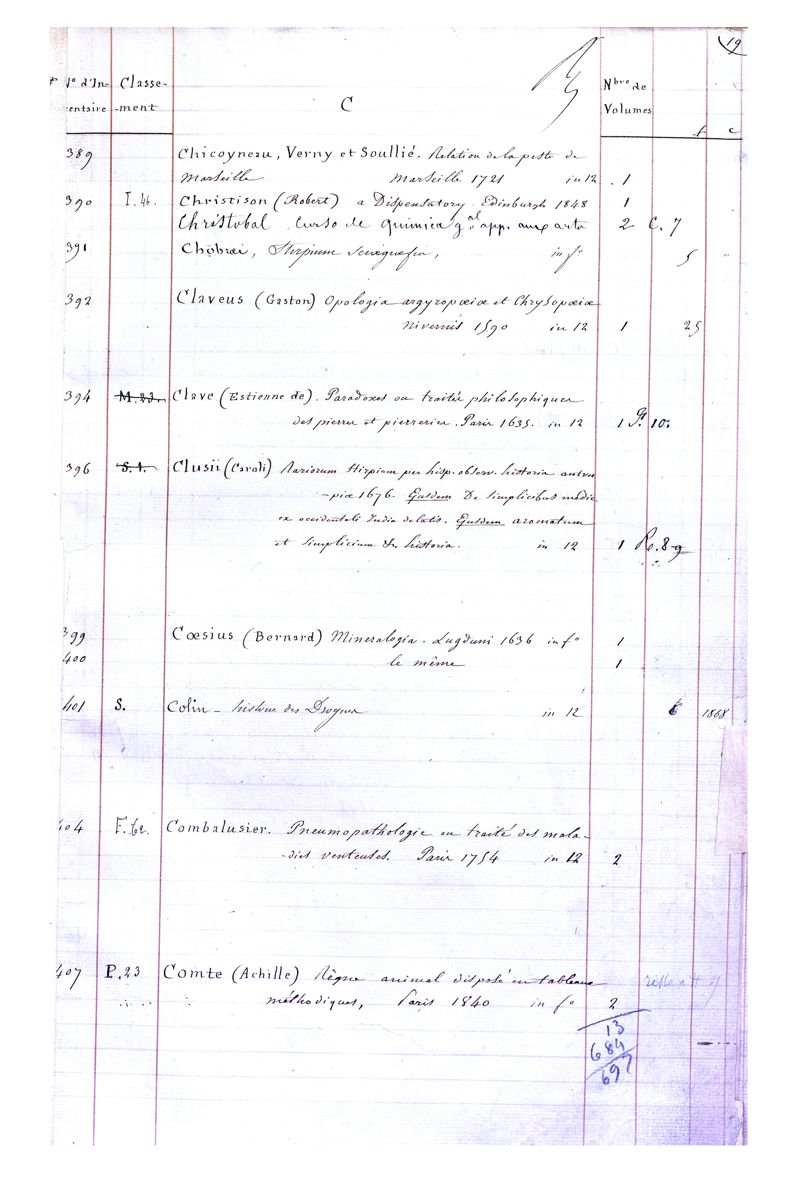 19
N° d'In- Classe- Nbre de
entaire -ment C Volumes
f c
389 Chicoyneau, Verny et Soullié. Relation de la peste de
Marseille Marseille 1721 in 12 1
390 I.46. Christison (Robert) a Dispensatory Edinburgh 1848 1
Christobal Curso de quimica gal app. aux arts 2 C. 7
391 Chabræi, Stirpium in f° 5 "
392 Claveus (Gaston) Apologia argyropœiæ et Chrysopœiæ
Nivernis 1590 in 12 1 25
394 M.23. Clave (Estienne de). Paradoxes ou traités philosophiques
des pierres et pierreries. Paris 1635. in 12 1 P. 10.
396 S.1. Clusii (Caroli) Rariorum stirpium per hisp. observ. historia antru
-piæ 1676. Ejusdem De simplicibus medic.
ex occidentali India delatis. Ejusdem aromatum
et simplicium &c historia. in 12 1 Re.8-9
399 Cœsius (Bernard) Mineralogia. Lugduni 1636 in f° 1
400 le même 1
401 S. Colin - histoire des Drogues in 12 6 1868
404 F.62. Combalusier. Pneumopathologie ou traité des mala-
-dies venteuses. Paris 1754 in 12 2
407 P.23 Comte (Achille) Règne animal disposé en tableaux
méthodiques, Paris 1840 in f° 2
13
684
697